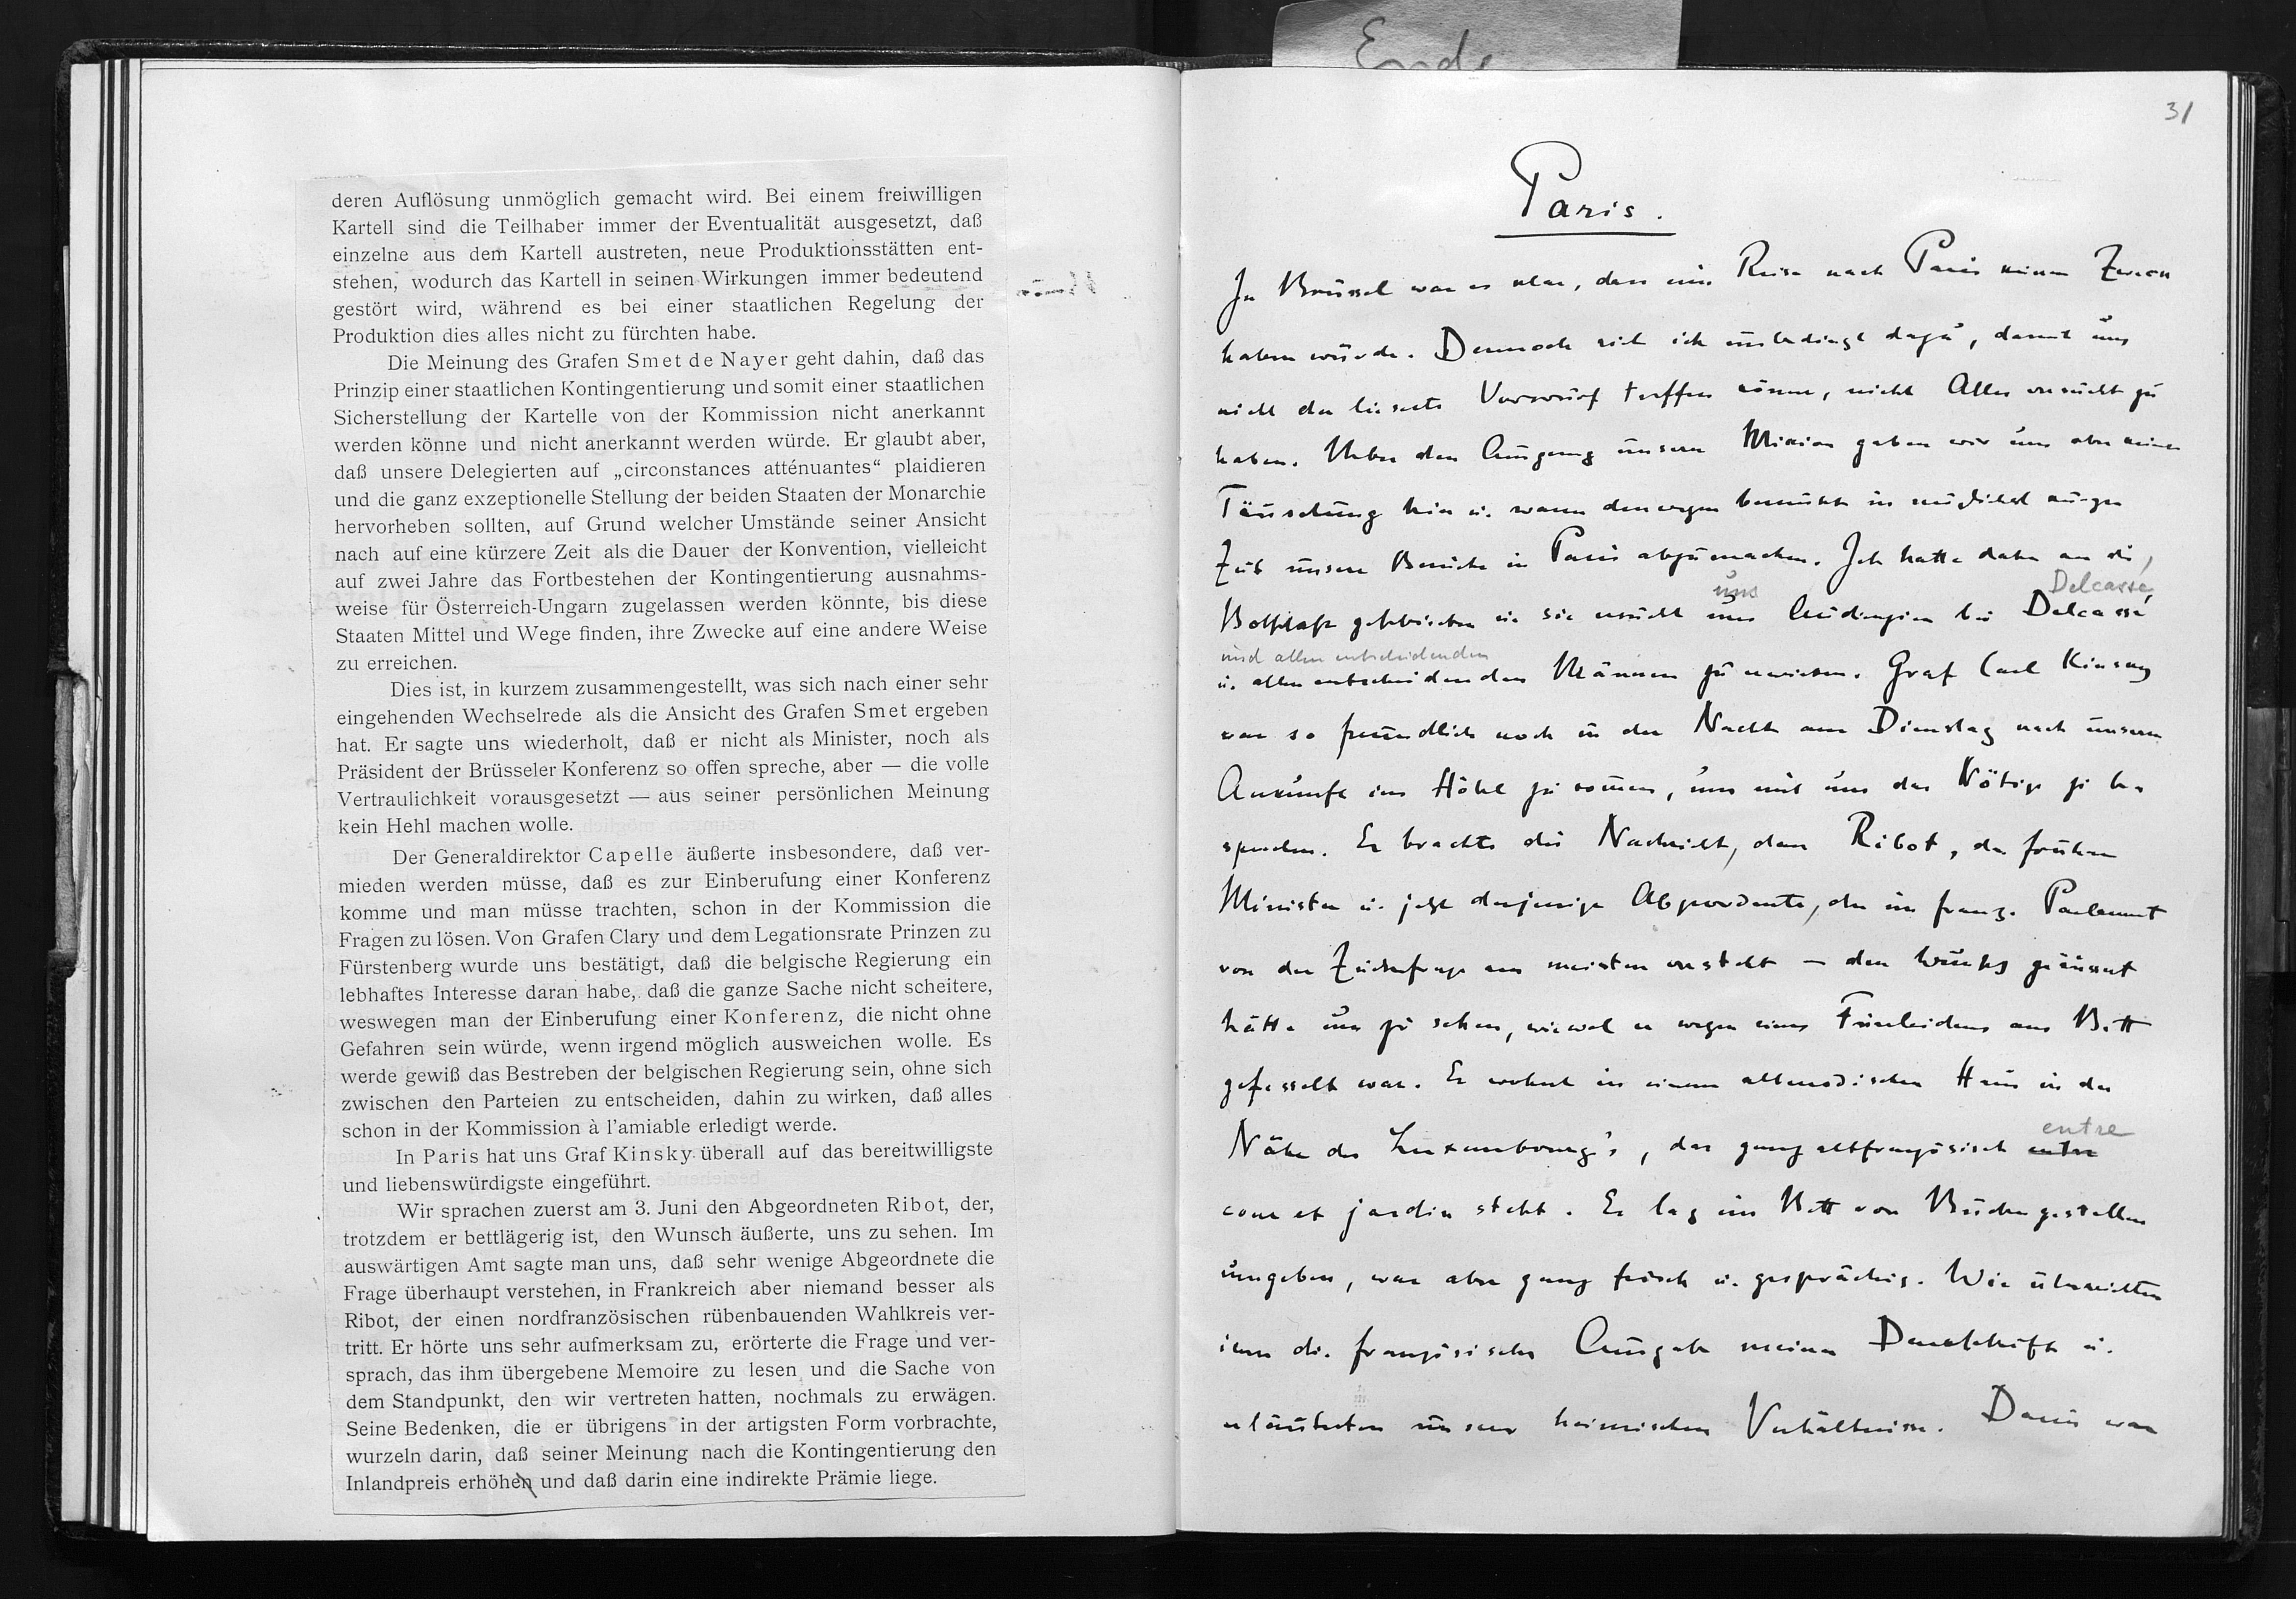 deren Auflösung unmöglich gemacht wird. Bei einem freiwilligen
Kartell sind die Teilhaber immer der Eventualität ausgesetzt, daß
einzelne aus dem Kartell austreten, neue Produktionsstätten ent-
stehen, wodurch das Kartell in seinen Wirkungen immer bedeutend
gestört wird, während es bei einer staatlichen Regelung der
Produktion dies alles nicht zu fürchten habe.
Die Meinung des Grafen Smet de Nayer geht dahin, daß das
Prinzip einer staatlichen Kontingentierung und somit einer staatlichen
Sicherstellung der Kartelle von der Kommission nicht anerkannt
werden könne und nicht anerkannt werden würde. Er glaubt aber,
daß unsere Delegierten auf „circonstances atténuantes“ plaidieren
und die ganz exzeptionelle Stellung der beiden Staaten der Monarchie
hervorheben sollten, auf Grund welcher Umstände seiner Ansicht
nach auf eine kürzere Zeit als die Dauer der Konvention, vielleicht
auf zwei Jahre das Fortbestehen der Kontingentierung ausnahms-
weise für Österreich-Ungarn zugelassen werden könnte, bis diese
Staaten Mittel und Wege finden, ihre Zwecke auf eine andere Weise
zu erreichen.
Dies ist, in kurzem zusammengestellt, was sich nach einer sehr
eingehenden Wechselrede als die Ansicht des Grafen Smet ergeben
hat. Er sagte uns wiederholt, daß er nicht als Minister, noch als
Präsident der Brüsseler Konferenz so offen spreche, aber — die volle
Vertraulichkeit vorausgesetzt — aus seiner persönlichen Meinung
kein Hehl machen wolle.
Der Generaldirektor Capelle äußerte insbesondere, daß ver-
mieden werden müsse, daß es zur Einberufung einer Konferenz
komme und man müsse trachten, schon in der Kommission die
Fragen zu lösen. Von Grafen Clary und dem Legationsrate Prinzen zu
Fürstenberg wurde uns bestätigt, daß die belgische Regierung ein
lebhaftes Interesse daran habe, daß die ganze Sache nicht scheitere,
weswegen man der Einberufung einer Konferenz, die nicht ohne
Gefahren sein würde, wenn irgend möglich ausweichen wolle. Es
werde gewiß das Bestreben der belgischen Regierung sein, ohne sich
zwischen den Parteien zu entscheiden, dahin zu wirken, daß alles
schon in der Kommission à l'amiable erledigt werde.
In Paris hat uns Graf Kinsky überall auf das bereitwilligste
und liebenswürdigste eingeführt.
Wir sprachen zuerst am 3. Juni den Abgeordneten Ribot, der,
trotzdem er bettlägerig ist, den Wunsch äußerte, uns zu sehen. Im
auswärtigen Amt sagte man uns, daß sehr wenige Abgeordnete die
Frage überhaupt verstehen, in Frankreich aber niemand besser als
Ribot, der einen nordfranzösischen rübenbauenden Wahlkreis ver-
tritt. Er hörte uns sehr aufmerksam zu, erörterte die Frage und ver-
sprach, das ihm übergebene Memoire zu lesen und die Sache von
dem Standpunkt, den wir vertreten hatten, nochmals zu erwägen.
Seine Bedenken, die er übrigens in der artigsten Form vorbrachte,
wurzeln darin, daß seiner Meinung nach die Kontingentierung den
Inlandpreis erhöhen und daß darin eine indirekte Prämie liege.
Ende
31
Paris.
In Brüssel war es klar, dass eine Reise nach Paris keinen Zweck
haben würde. Dennoch riet ich unbedingt dazu, damit uns
nicht der leiseste Vorwurf treffen könne, nicht Alles versucht zu
haben. Ueber den Ausgang unserer Mission gaben wir uns aber keiner
Täuschung hin u. waren deswegen bemüht in möglichst kurzer
Zeit unsere Besuche in Paris abzumachen. Ich hatte daher an die
uns Delcassé
Botschaft geschrieben u. sie ersucht uns Audienzen bei Delcassé
und allen entscheidenden
u. allen entscheidenden Männern zu erwirken. Graf Carl Kinsky
war so freundlich noch in der Nacht am Dienstag nach unserer
Ankunft ins Hôtel zu kommen, um mit uns das Nötige zu be-
sprechen. Er brachte die Nachricht, dass Ribot, der frühere
Minister u. jetzt derjenige Abgeordnete, der im franz. Parlament
von der Zuckerfrage am meisten versteht – den Wunsch geäussert
hätte uns zu sehen, wiewol er wegen eines Fussleidens ans Bett
gefesselt war. Er wohnt in einem altmodischen Haus in der
entre
Nähe des Luxembourg's, das ganz altfranzösisch entre
cour et jardin steht. Er lag im Bett von Büchergestellen
umgeben, war aber ganz frisch u. gesprächig. Wir überreichten
ihm die französische Ausgabe meiner Denkschrift u.
erläuterten unsere heimischen Verhältnisse. Darin war